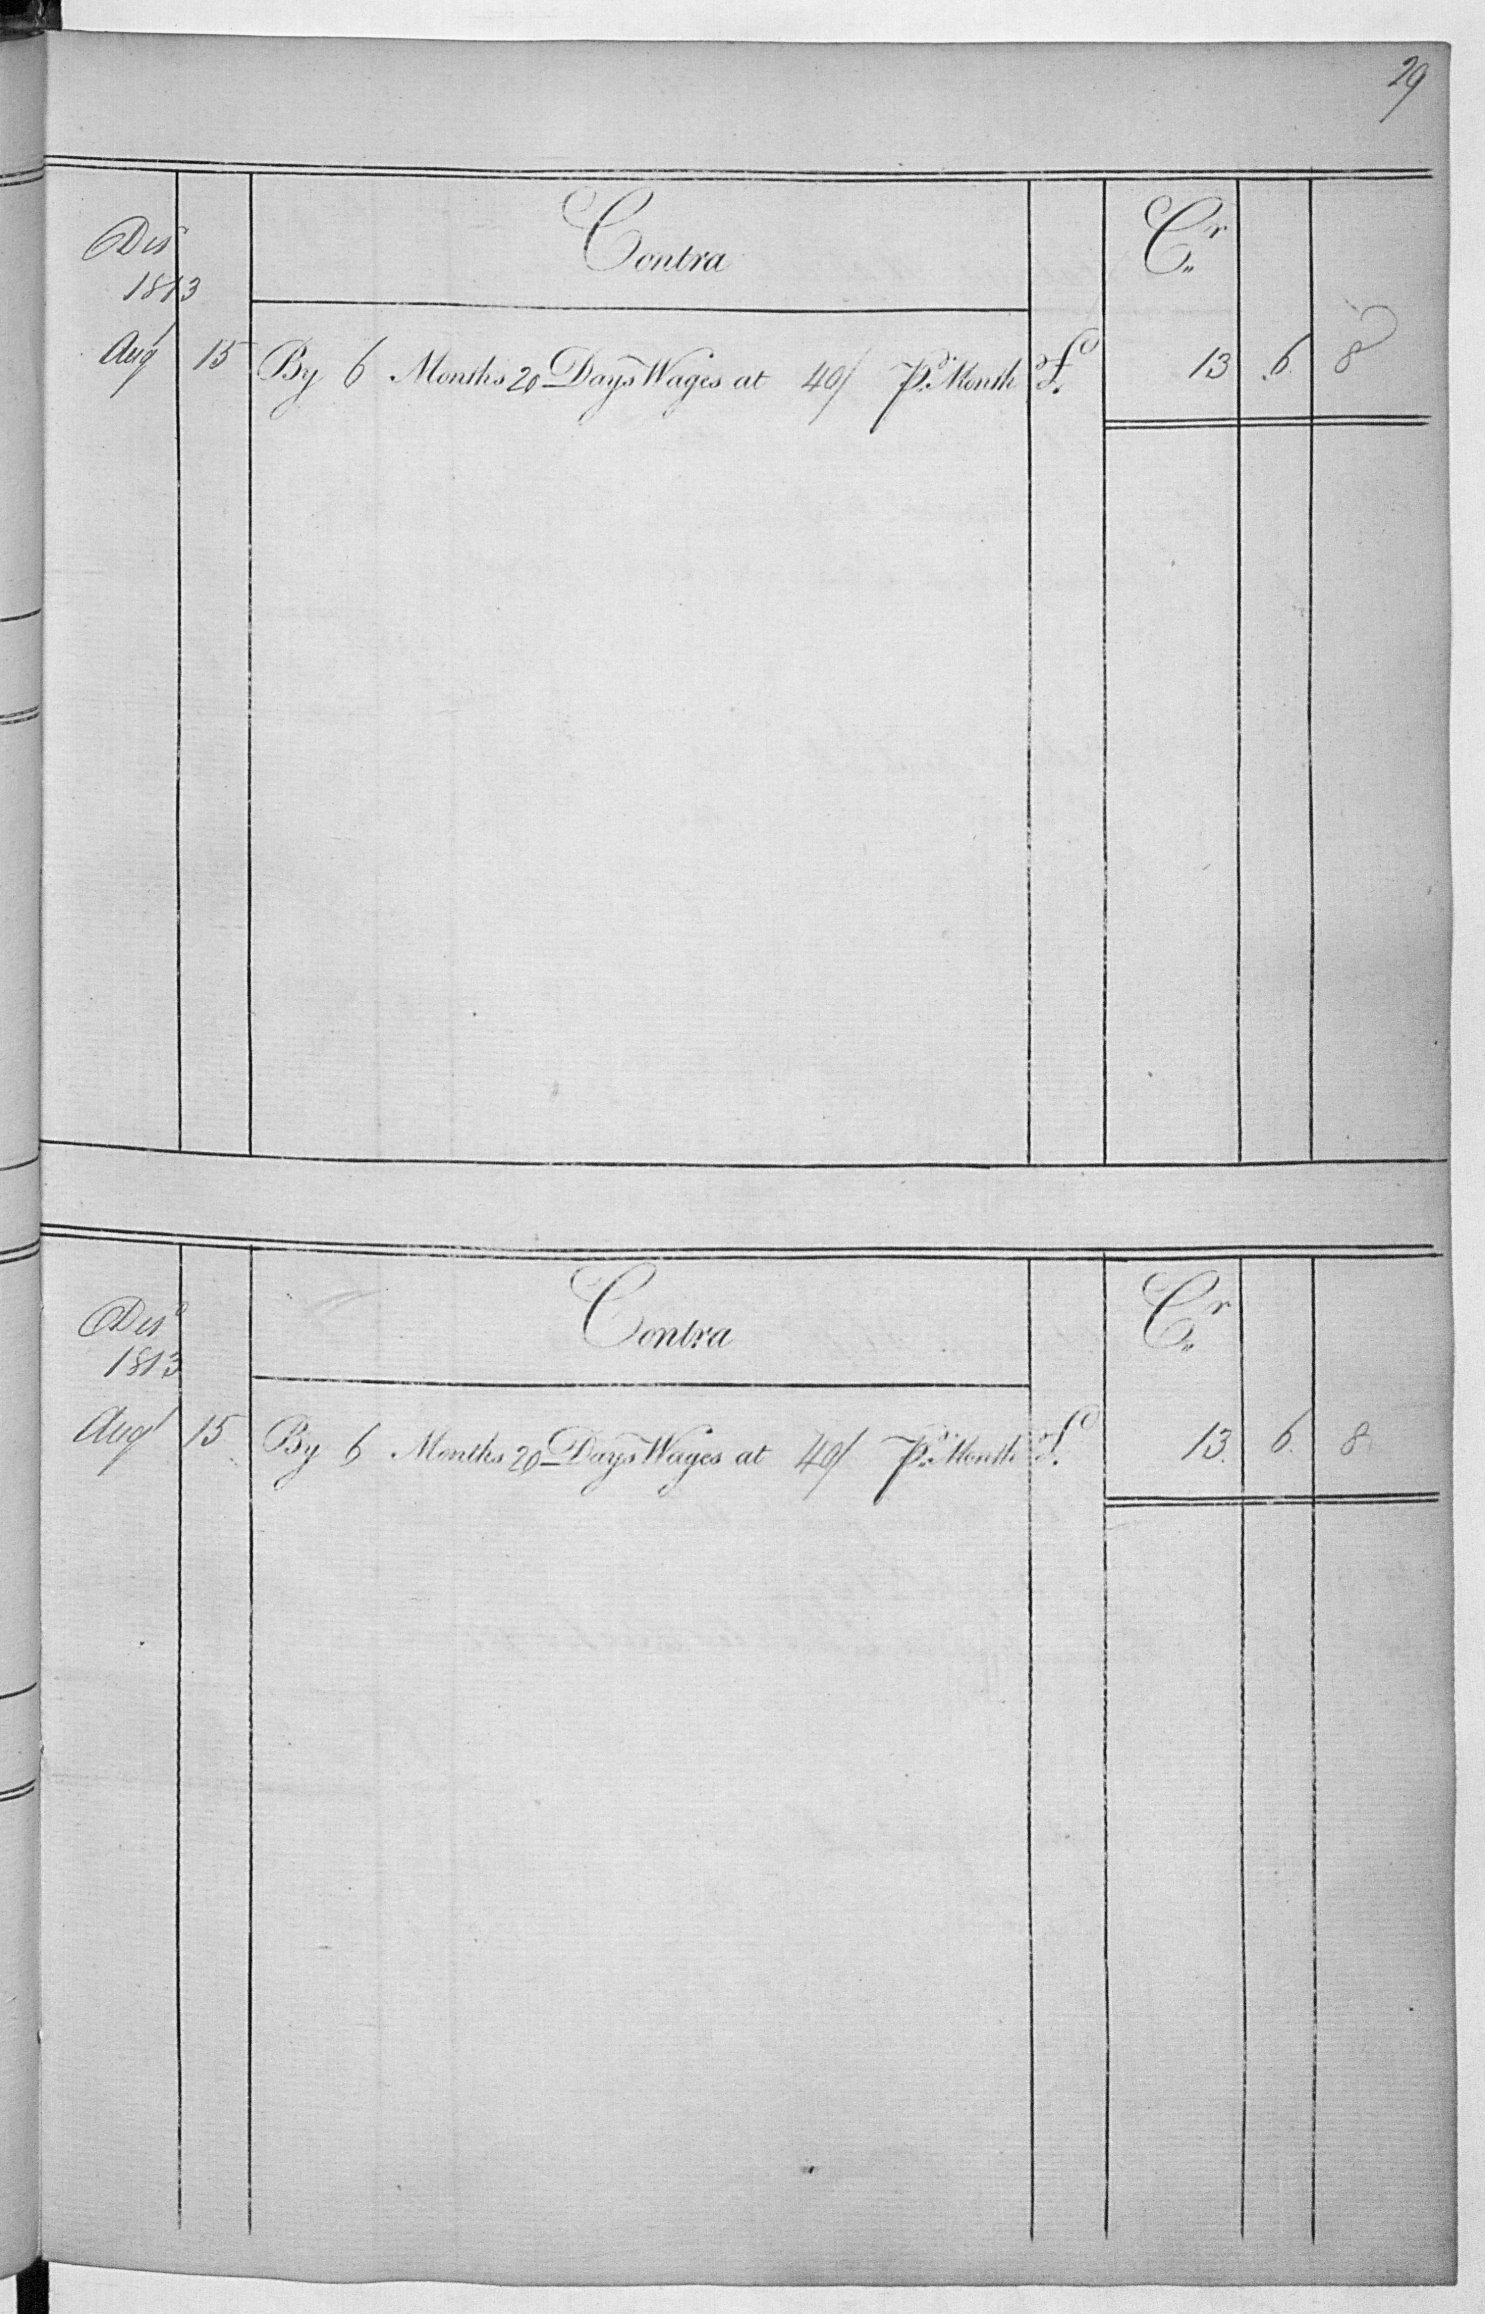 29
Contra Cr
Disd
1813
Augt 15 By 6 Months 20 Days Wages at 40/ Pr. Month £ 13 6 8
Contra Cr
Disd
1813
Augt 15 By 6 Months 20 Days Wages at 40/ Pr. Month £ 13 6 8